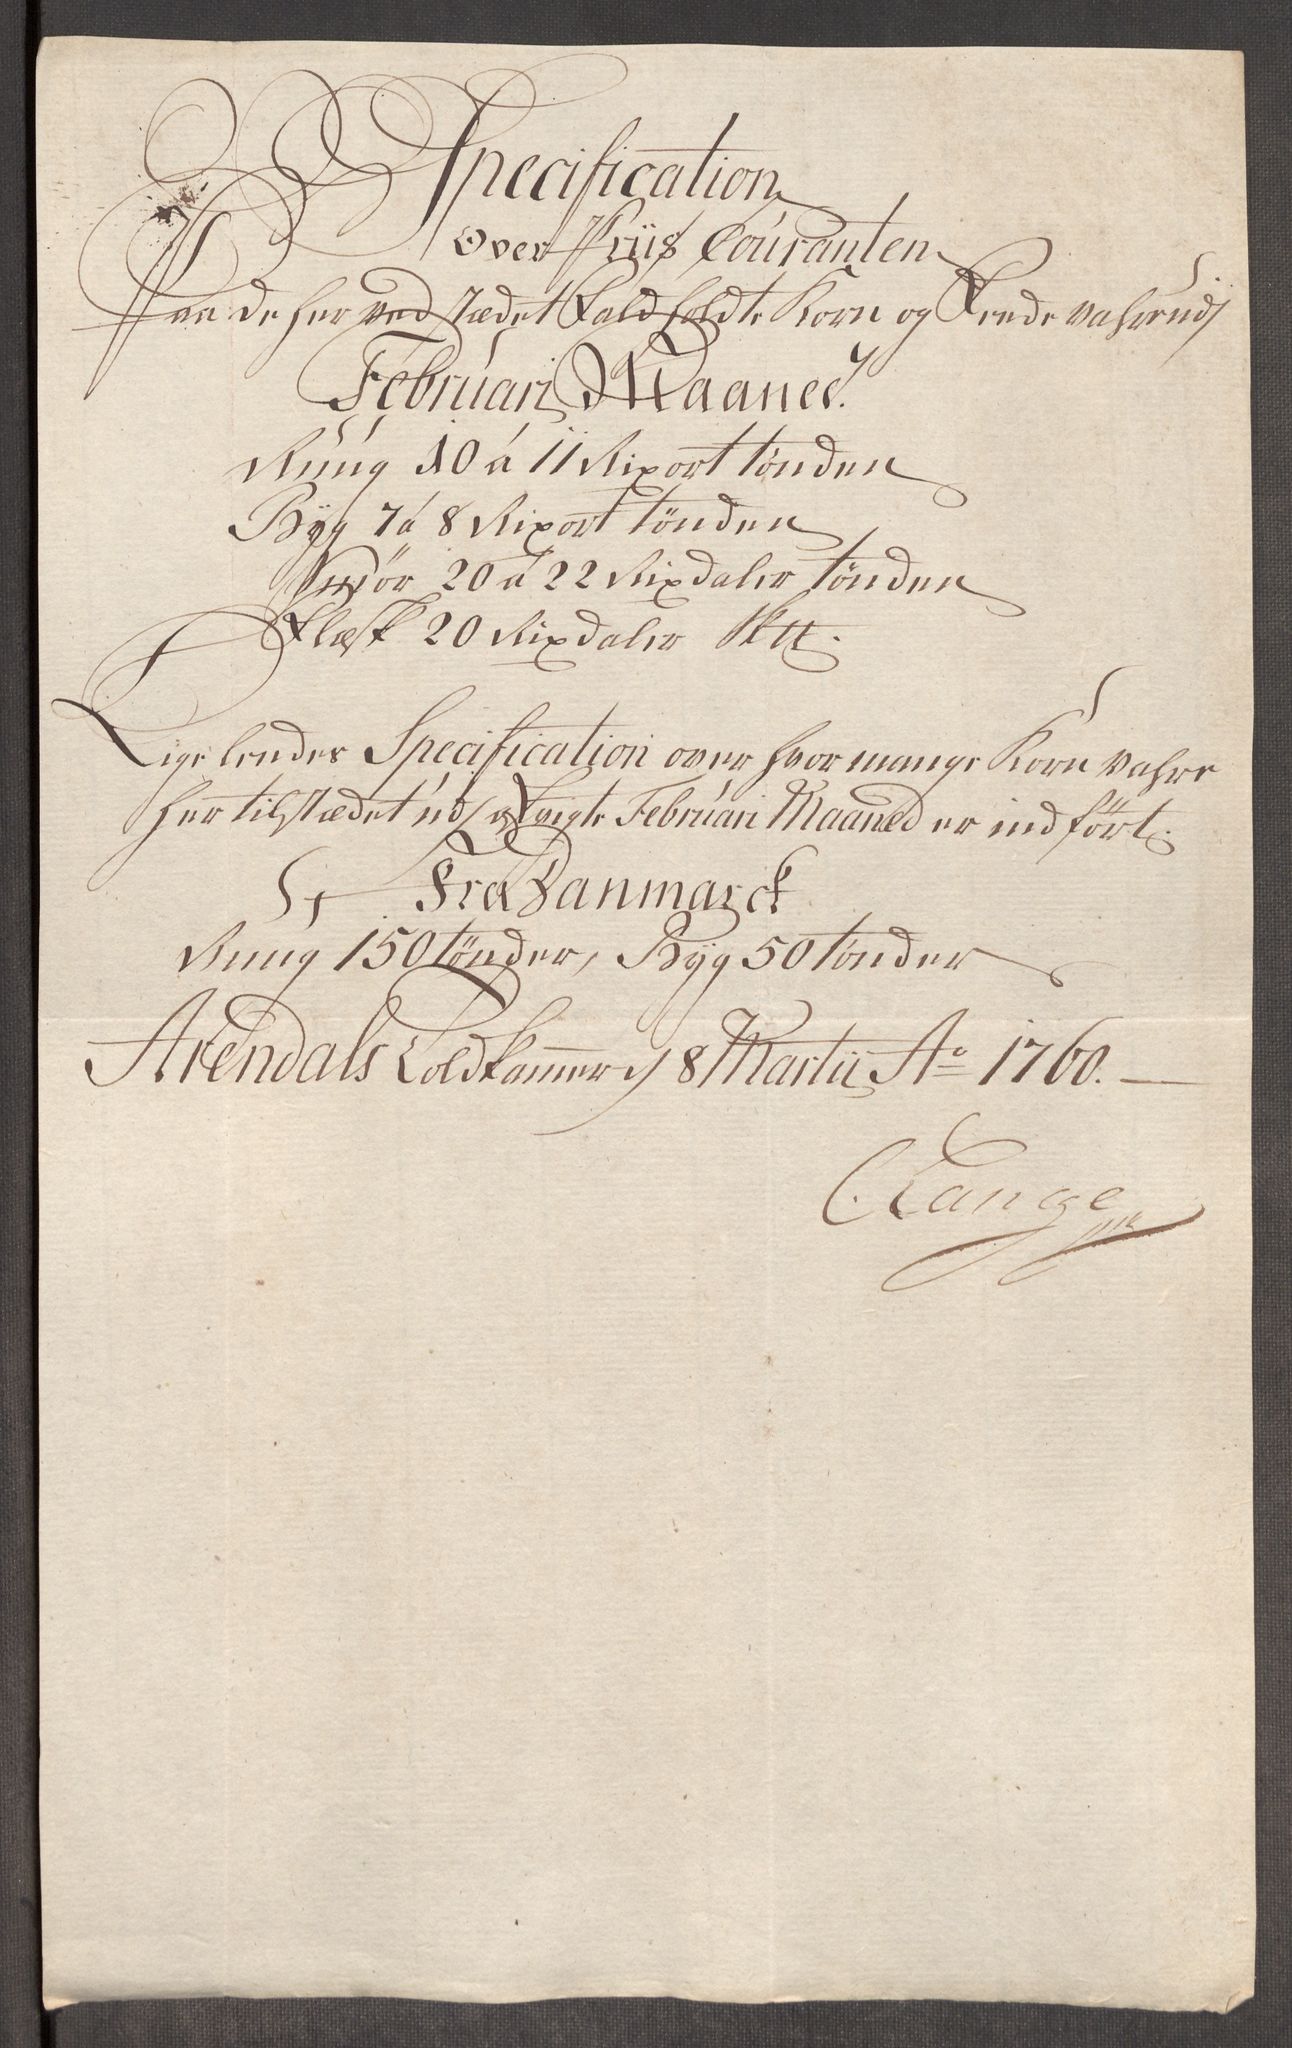 Specification
Over Priis Couranten
Paa de her ved stædet Fald holdte Korn og Fede vahre udj
Februari Maaned.
Rúug 10 á 11 Rixort tønden
Byg 7 á 8 Rixort tønden
Smør 20 á 22 Rixdaler tønden
Flæsk 20 Rixdaler
Ligeleedes Specification over hvor mange Korn vahre
her til stædet udj Februari Maaned er ind ført.
Fra Danmarck
Ruug 150 tønder, Byg 50 tønder
Arendals Toldkammer d 8 Martii Ao 1760.
C Lange